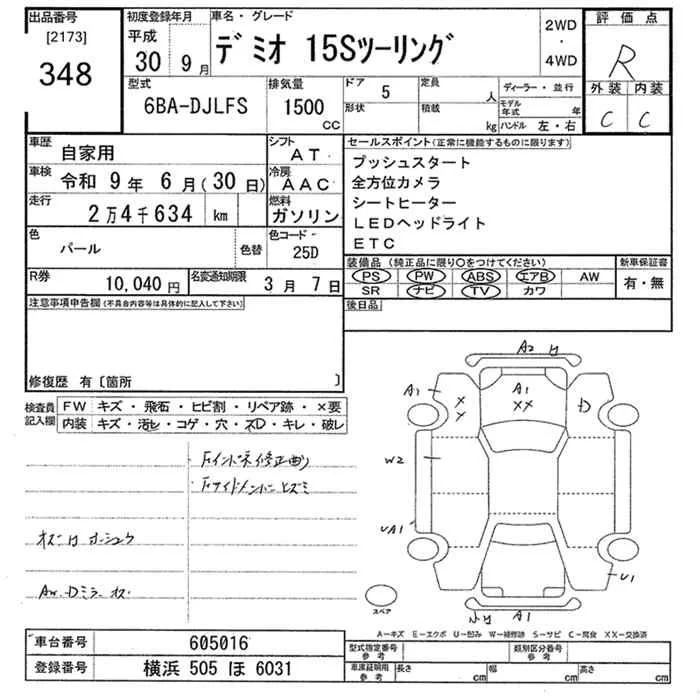 出品番号
[2173]
348
初度登録年月
平成
30 9月
車名・グレード
デミオ 15Sツーリング
2WD
・
4WD
評価点
R
外装 内装
C C
型式
6BA-DJLFS
排気量
1500
CC
ドア 5
形状
定員 人
積載 kg
ディーラー・並行
モデル年式 年
ハンドル 左・右
車歴 自家用
シフト AT
車検 令和 9年 6月(30日)
冷房 AAC
走行 2万4千634 km
燃料 ガソリン
色 パール
色替
色コード
25D
R券 10,040円
名変通知期限 3月 7日
セールスポイント(正常に機能するものに限ります)
プッシュスタート
全方位カメラ
シートヒーター
LEDヘッドライト
ETC
装備品 (純正品に限り○をつけてください)
PS PW ABS エアB AW
SR ナビ TV カワ
新車保証書
有・無
後日品
注意事項申告欄(不具合内容等は具体的に記入して下さい)
修復歴 有〔箇所 〕
検査員
記入欄
FW キズ・飛石・ヒビ割・リペア跡・×要
内装 キズ・汚ヒ・コゲ・穴・ズD・キレ・破レ
Fインパネ修正歪り
Fサイドメンバーヒズミ
A2
A1
A1
XX
X
X
D
W2
UA1
U1
A1
スペア
A-キズ E-エクボ U-凹み W-補修跡 S-サビ C-腐食 XX-交換済
車台番号 605016
登録番号 横浜 505 ほ 6031
型式指定番号
参考
類別区分番号
参考
車庫証明用
参考
長さ cm
幅 cm
高さ cm